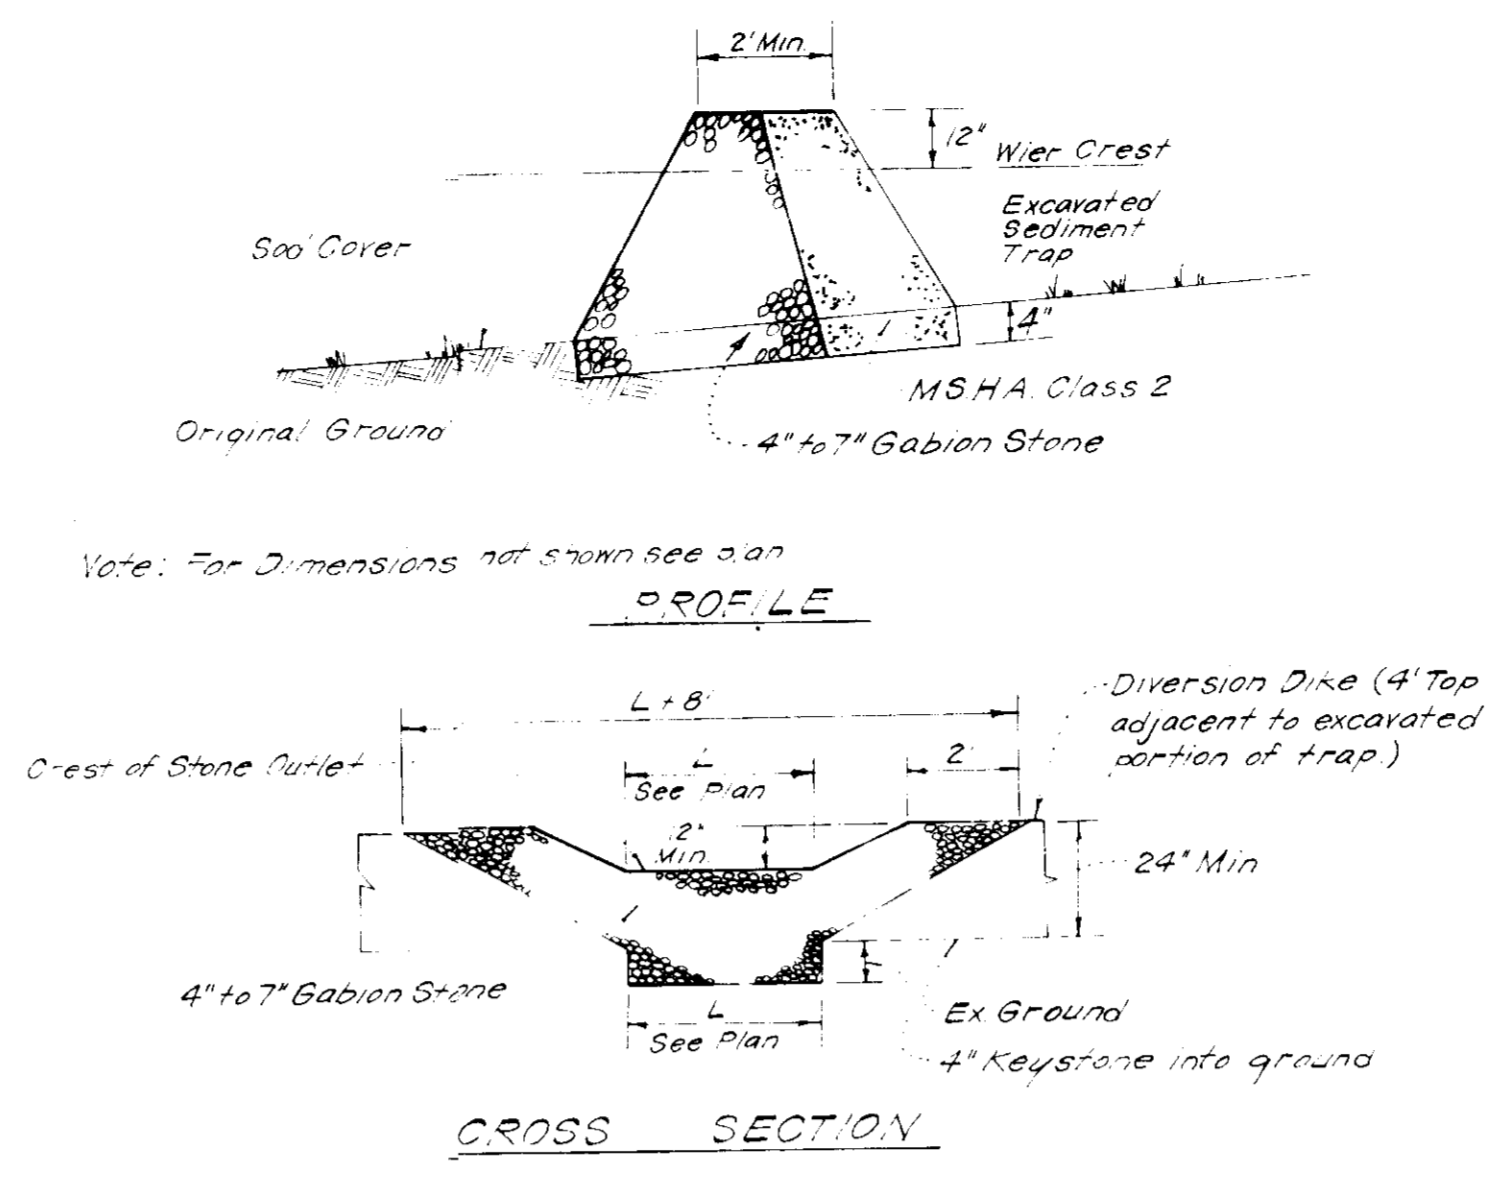 2' Min.
12"
Wier Crest
Excavated
Sediment
Trap
Sod Cover
4"
M.S.H.A. Class 2
Original Ground
4" to 7" Gabion Stone
Note: For Dimensions not shown see plan
PROFILE
L + 8'
Diversion Dike (4' Top
adjacent to excavated
portion of trap.)
Crest of Stone Outlet
L
See Plan
2'
12"
Min.
24" Min
4" to 7" Gabion Stone
L
See Plan
Ex. Ground
4" Keystone into ground
CROSS SECTION